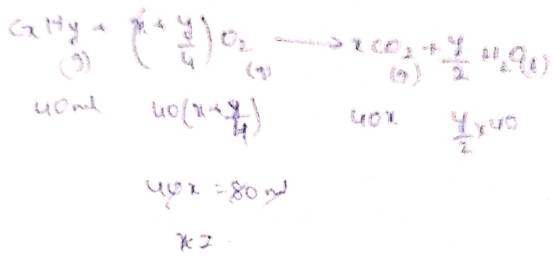 CxHy + (x + y/4) O2 ⟶ xCO2 + y/2 H2O(l)
(g) (g) (g)
40ml 40(x + y/4) 40x y/2 × 40
40x = 80 ml
x =